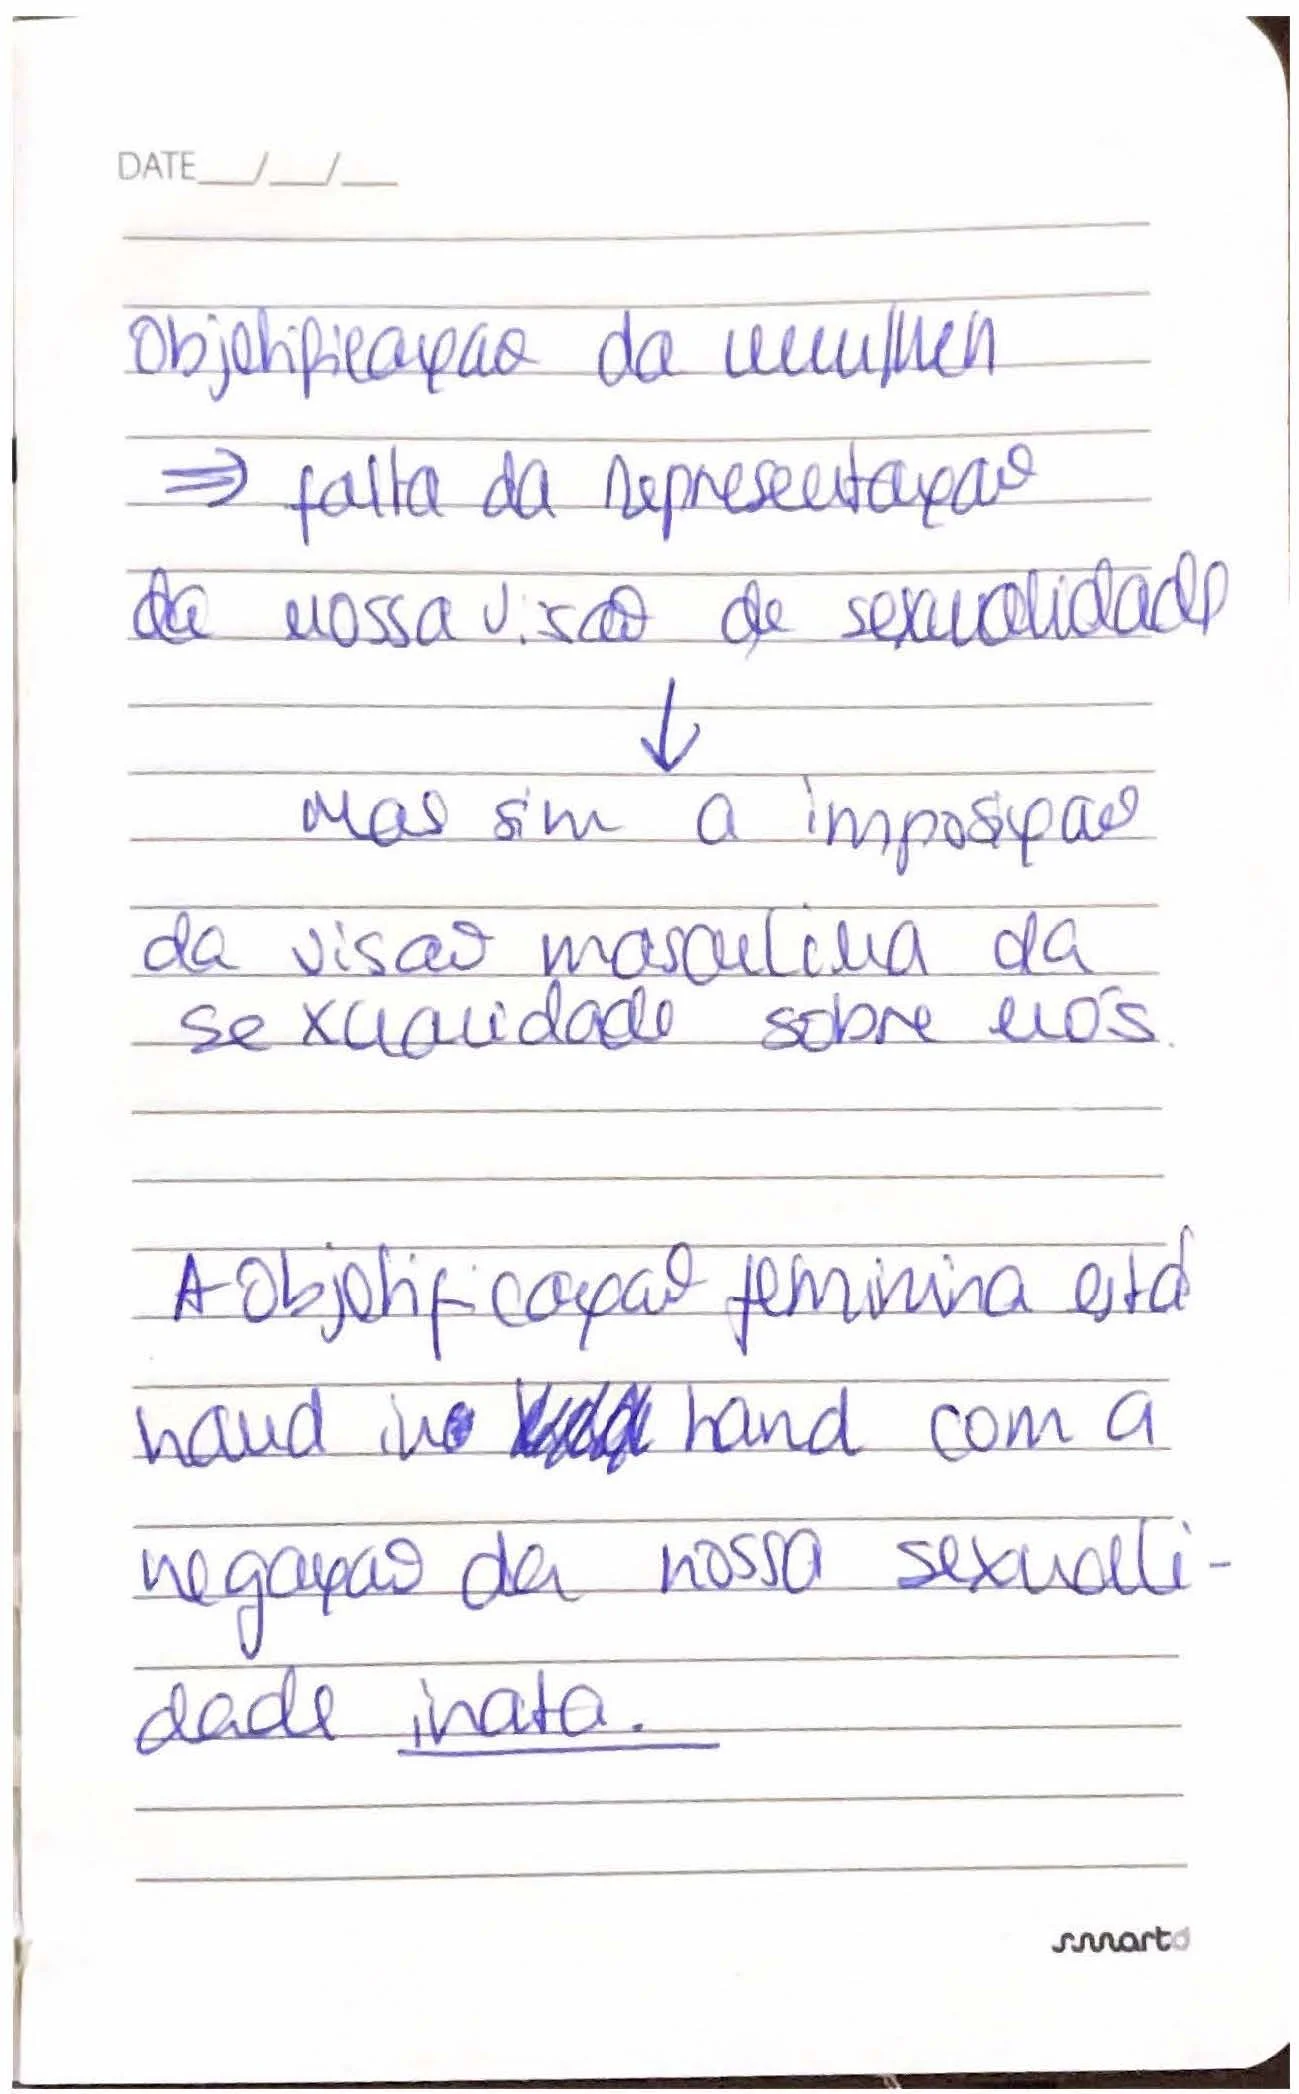 DATE__/__/__
Objetificação da mulher
⇒ falta da representação
da nossa visão de sexualidade
↓
Mas sim a imposição
da visão masculina da
sexualidade sobre nós.
A Objetificação feminina está
hand in hand com a
negação da nossa sexuali-
dade inata.
smartd